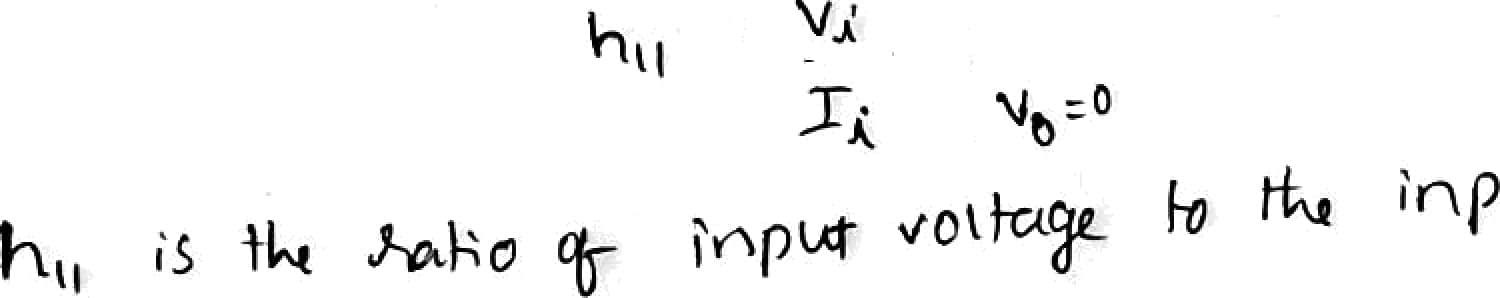 h11 Vi
Ii Vo=0
h11 is the ratio of input voltage to the inp